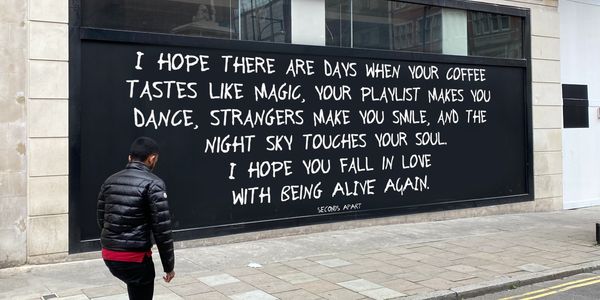 I HOPE THERE ARE DAYS WHEN YOUR COFFEE
TASTES LIKE MAGIC, YOUR PLAYLIST MAKES YOU
DANCE, STRANGERS MAKE YOU SMILE, AND THE
NIGHT SKY TOUCHES YOUR SOUL.
I HOPE YOU FALL IN LOVE
WITH BEING ALIVE AGAIN.
SECONDS APART